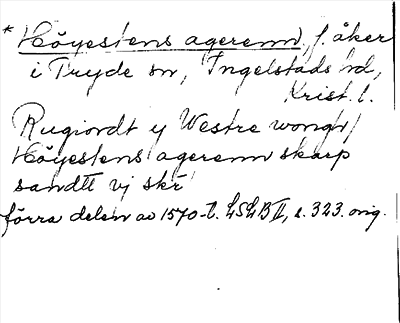 * Höyestens agerenn, f. åker
i Tryde sn, Ingelstads hd,
Krist. l.
Rugiordt y Westre wongh /
Höyestens agerenn skarp
sandtt vj skr
förra delen av 1570-t. LSLB II, s. 323. orig.